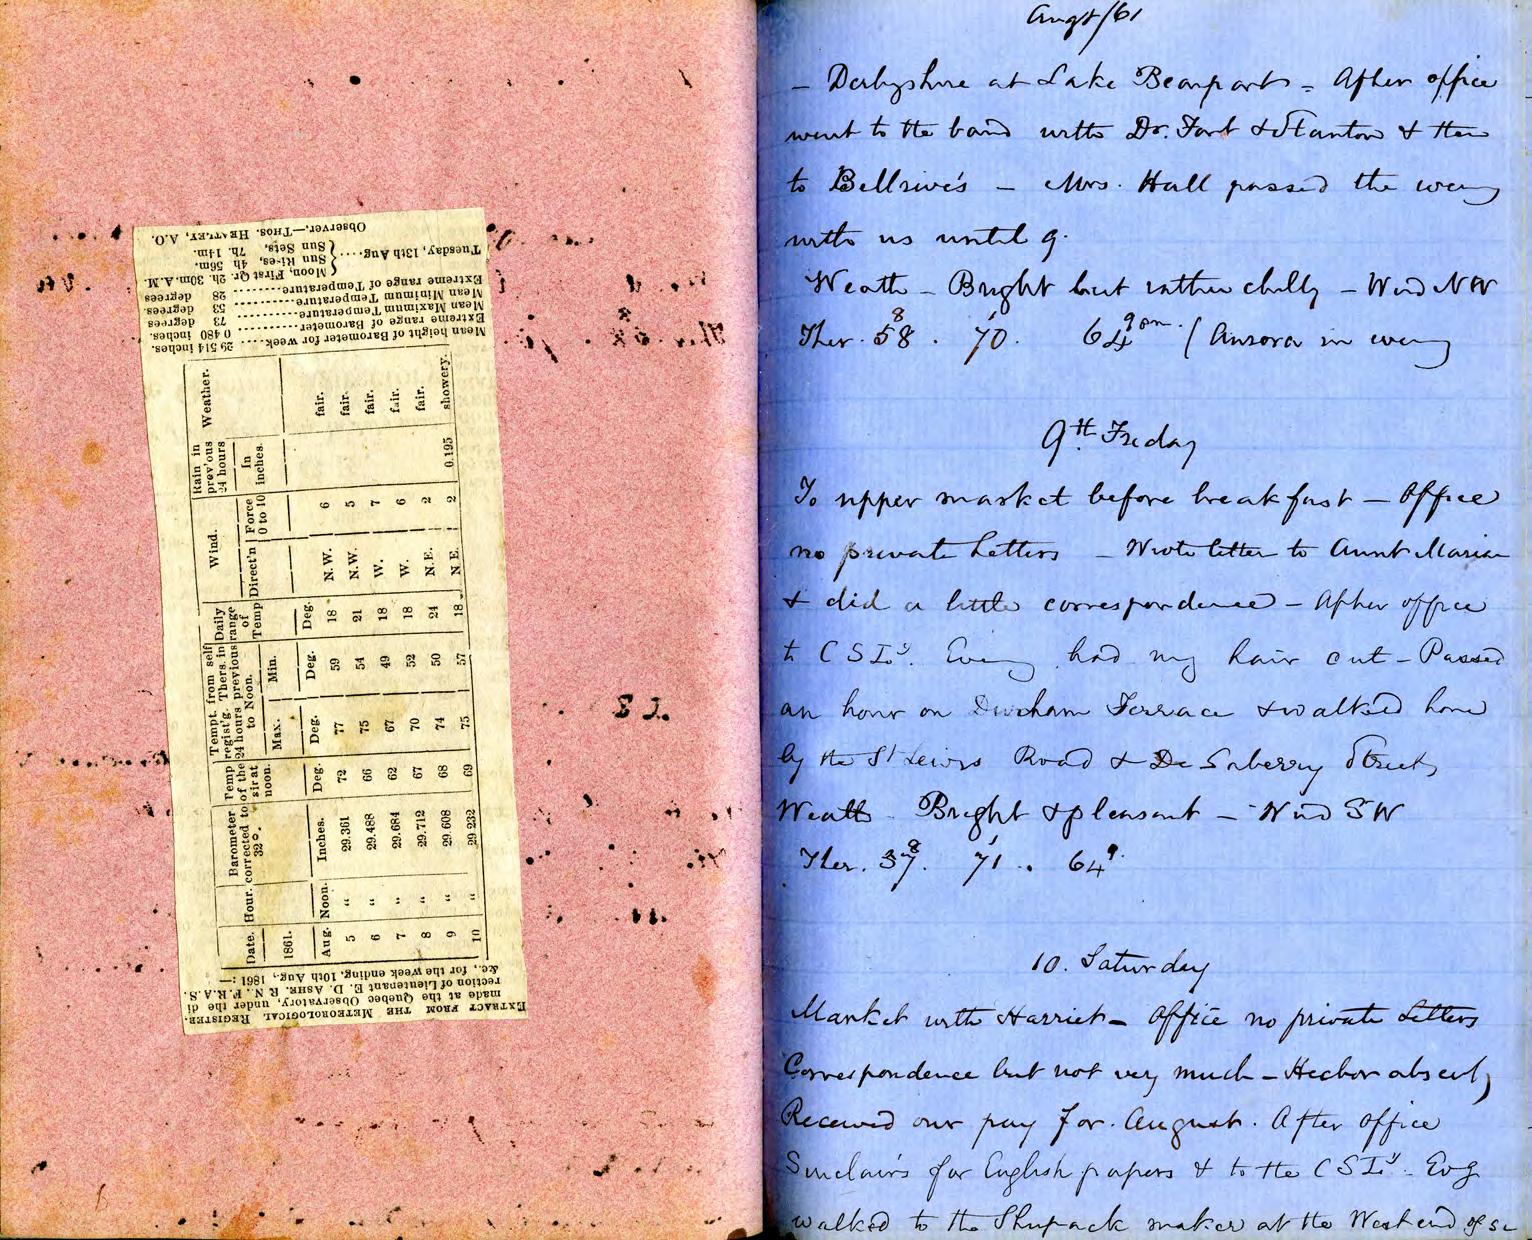 EXTRACT FROM THE METEOROLOGICAL REGISTER,
made at the Quebec Observatory, under the di
rection of Lieutenant E. D. ASHE. R N. F R.A S.
&c., for the week ending, 10th Aug, 1861 :—
Date. Hour. Barometer corrected to 32°. Temp of the air at noon. Tempt. from self regist'g. Thers. in 24 hours previous to Noon. Daily range of Temp Wind. Rain in prev'ous 24 hours Weather.
Max. Min. Direct'n Force 0 to 10 In inches.
1861.
Inches. Deg. Deg. Deg. Deg.
Aug. Noon.
5 “ 29.361 72 77 59 18 N.W. 6 fair.
6 “ 29.488 66 75 54 21 N.W. 5 fair.
7 “ 29.684 62 67 49 18 W. 7 fair.
8 “ 29.712 67 70 52 18 W. 6 fair.
9 “ 29.608 68 74 50 24 N.E. 2 fair.
10 “ 29 232 69 75 57 18 N E. 2 0.195 showery.
Mean height of Barometer for week.... 29 514 inches.
Extreme range of Barometer............ 0 480 inches.
Mean Maximum Temperature............ 73 degrees
Mean Minimum Temperature............ 53 degrees.
Extreme range of Temperature.......... 28 degrees
Tuesday, 13th Aug..... { Moon, First Qr. 2h. 30m. A.M.
Sun Rises, 4h 56m.
Sun Sets, 7h. 14m.
Observer.—THOS. HEATLEY, A.O.
Augt/61
– Derbyshire at Lake Beauport – After office
went to the band with Dr. Fort & Stanton & then
to Bellrive's – Mrs. Hall passed the eveng
with us until 9.
Weath – Bright but rather chilly – Wind NW
Ther. 58 8 . 70 1 . 64 9 pm. / Aurora in eveng
9th Friday
To upper market before breakfast – Office
no private Letters – Wrote letter to Aunt Maria
& did a little correspondence – After office
to C S Iy. Eveng had my hair cut – Passed
an hour on Durham Terrace & walked home
by the St Lewis Road & De Saberry Street,
Weath Bright & pleasant – Wind SW
Ther. 57 8 . 71 1 . 64 9.
10. Saturday
Market with Harriet – Office no private Letters
Correspondence but not very much – Hechor absent,
Received our pay for August. After office
Sinclair's for English papers & to the C S Iy. Evg
walked to the maker at the West end of